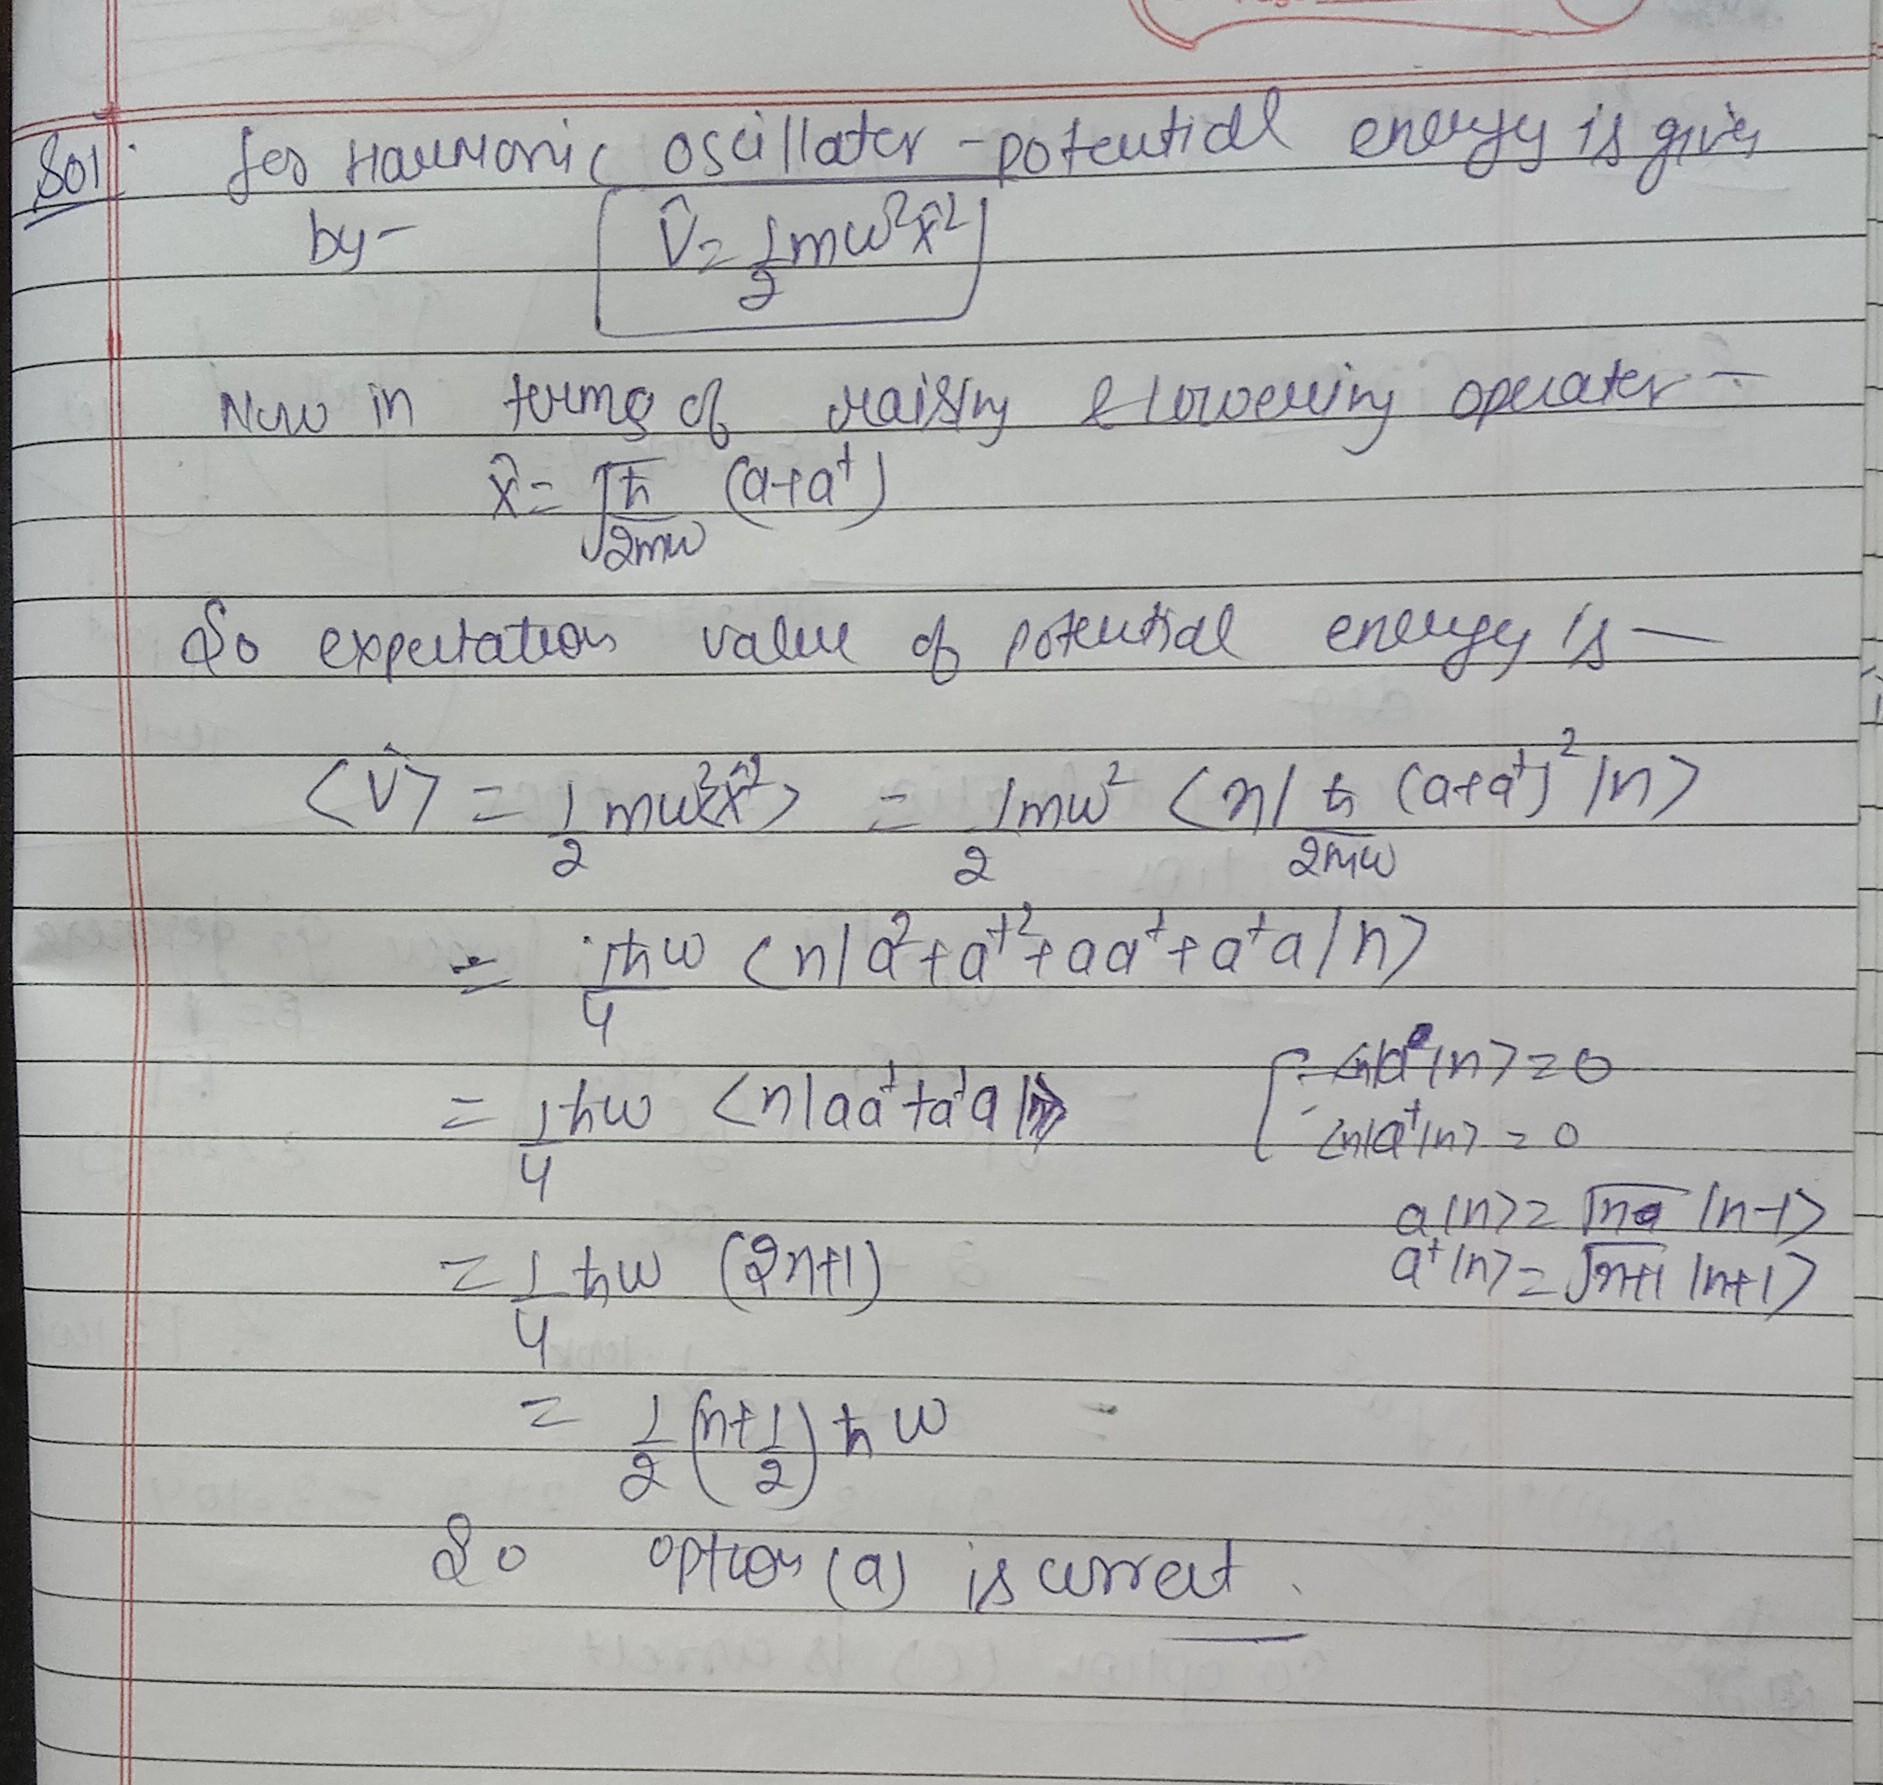 Sol: for Harmonic oscillater - potential energy is given
by - V̂ = 1/2 mω²x̂²
Now in terms of raising & lowering operater -
x̂ = √(ħ/2mω) (a+a†)
So expectation value of potential energy is —
<V̂> = 1/2 mω²<x̂²> = 1/2 mω² <n| ħ/2mω (a+a†)² |n>
= 1ħω/4 <n|a²+a†²+aa†+a†a|n>
= 1/4 ħω <n|aa†+a†a|n>
<n|a|n> = 0
<n|a†|n> = 0
a|n> = √n |n-1>
a†|n> = √n+1 |n+1>
= 1/4 ħω (2n+1)
= 1/2 (n+1/2) ħω =
So option (a) is correct.